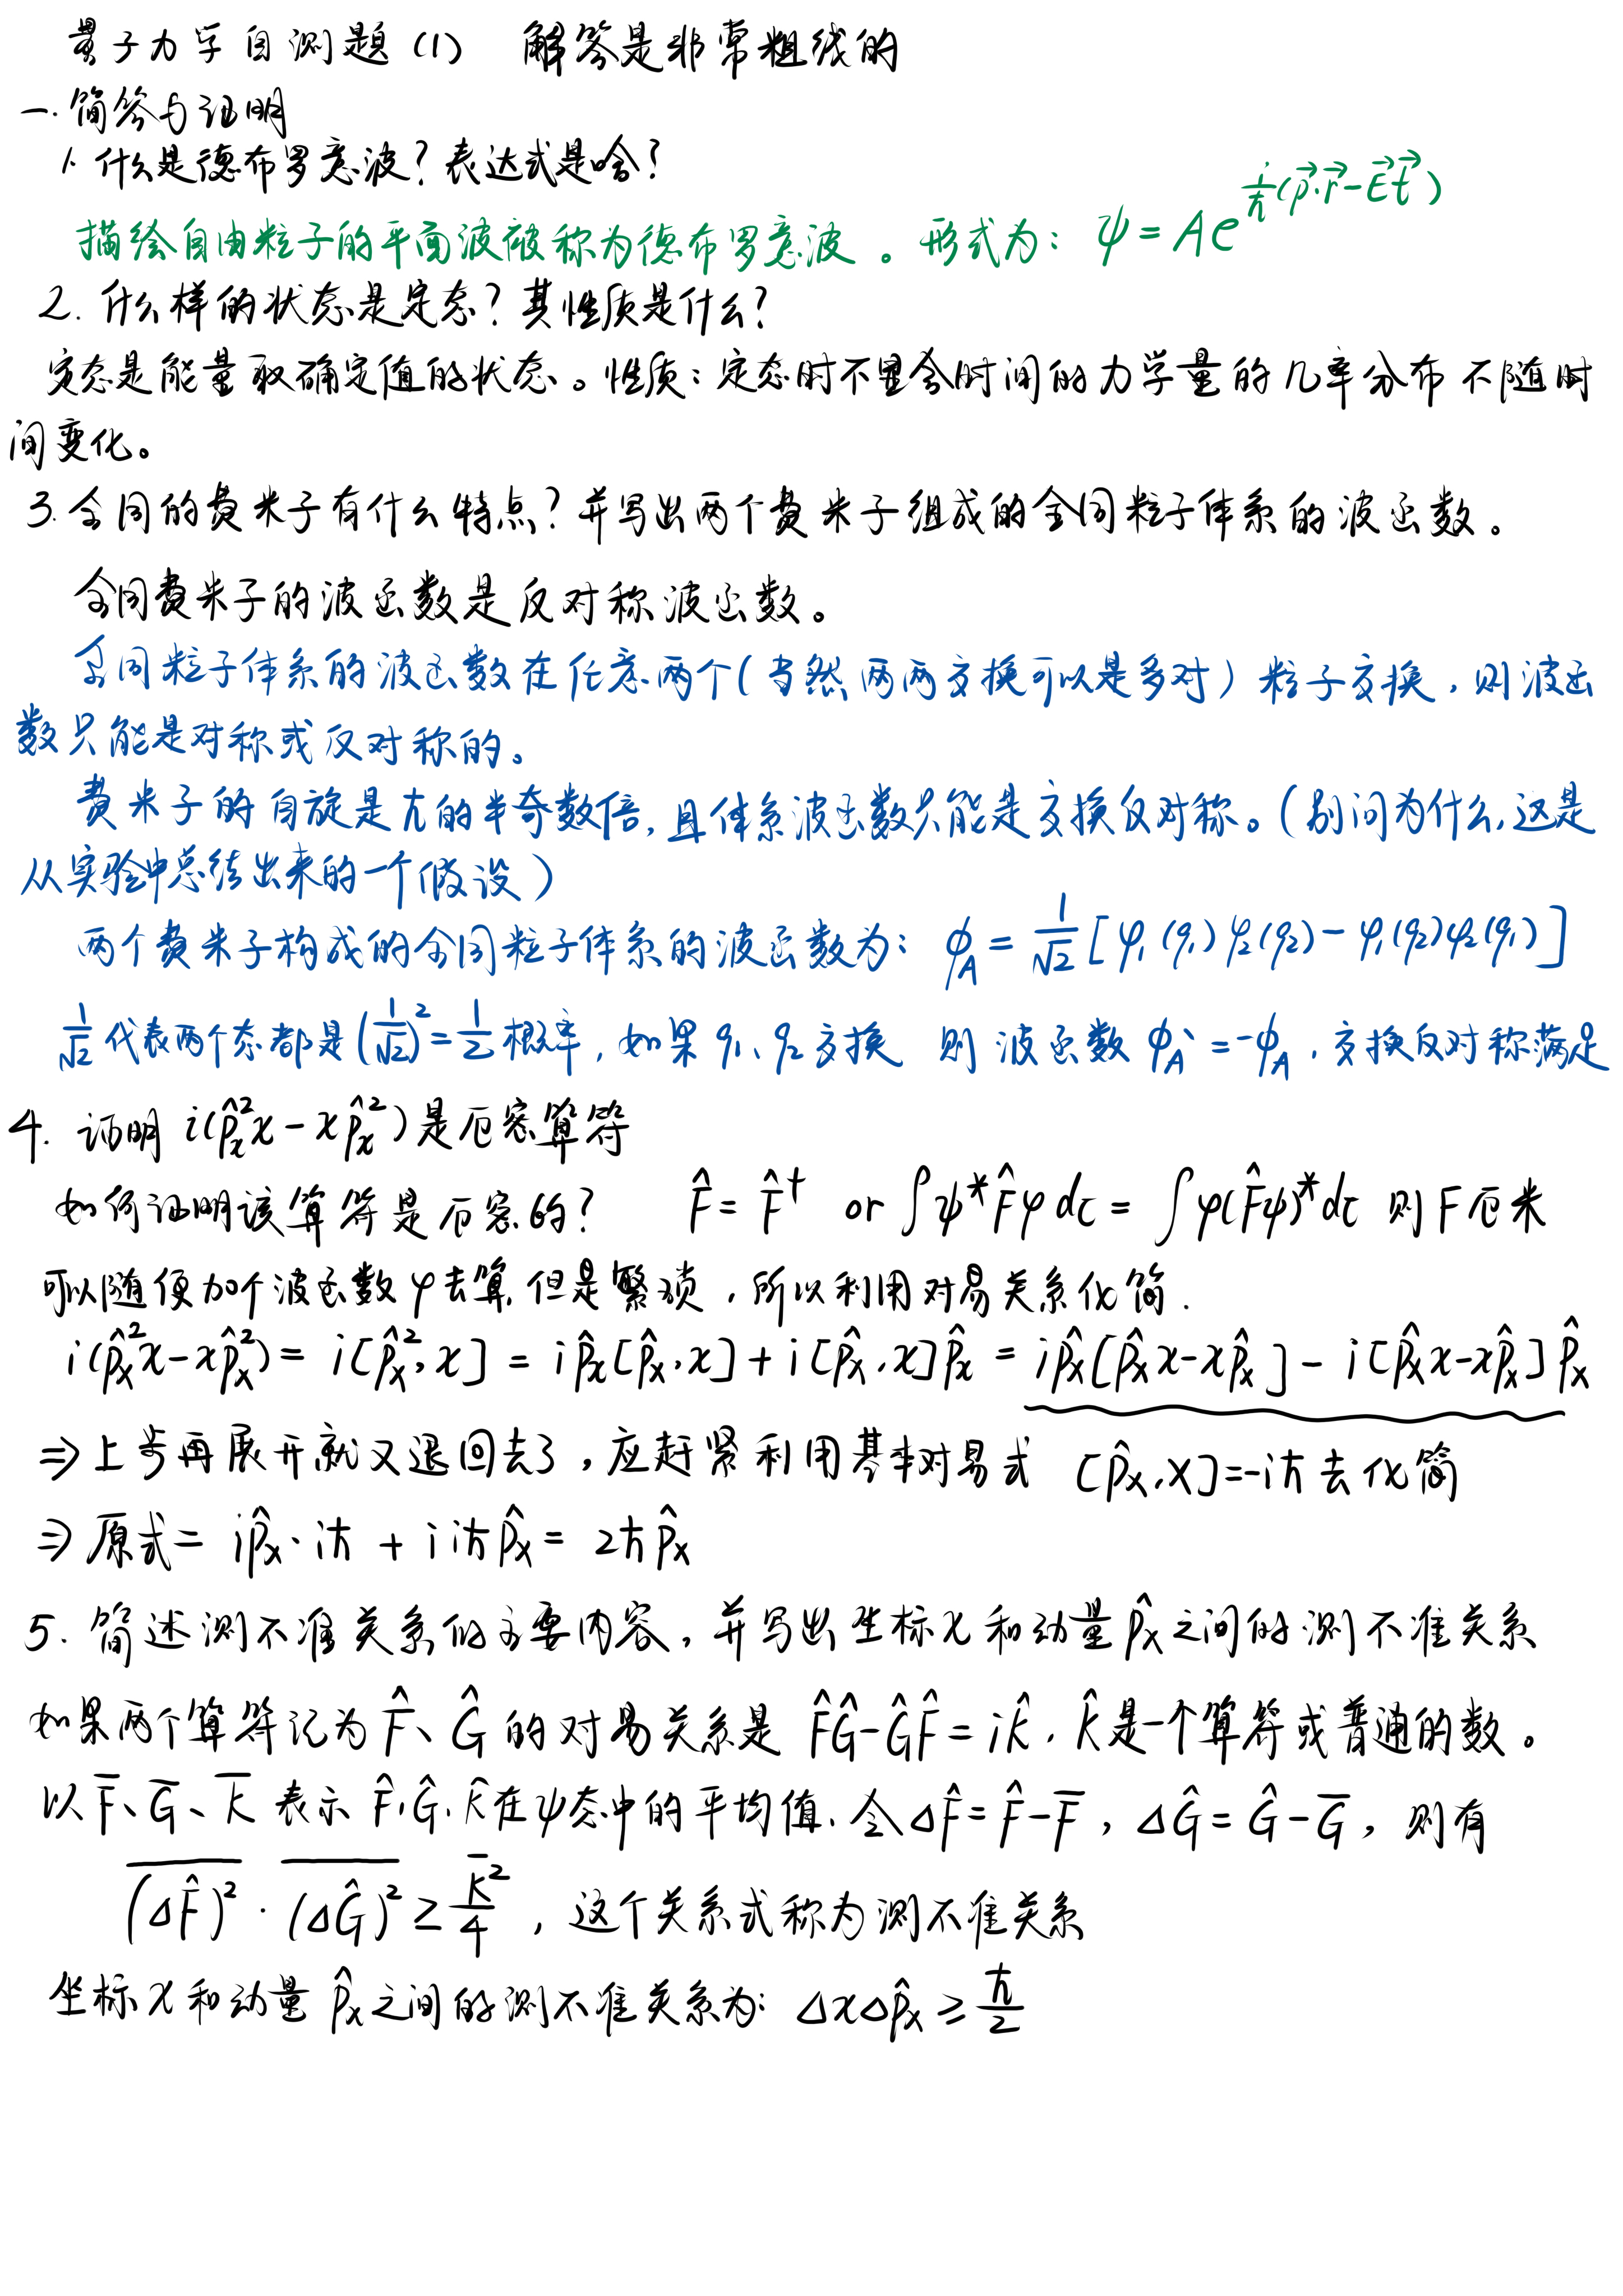 量子力学自测题(1) 解答是非常粗线的
一.简答与证明
1. 什么是德布罗意波？表达式是啥？
描绘自由粒子的平面波被称为德布罗意波。形式为：ψ = A e^{\frac{i}{ħ}(\vec{p}·\vec{r}-\vec{E}\vec{t})}
2. 什么样的状态是定态？其性质是什么？
定态是能量取确定值的状态。性质：定态时不显含时间的力学量的几率分布不随时
间变化。
3. 全同的费米子有什么特点？并写出两个费米子组成的全同粒子体系的波函数。
全同费米子的波函数是反对称波函数。
全同粒子体系的波函数在任意两个(当然两两交换可以是多对)粒子交换,则波函
数只能是对称或反对称的。
费米子的自旋是ħ的半奇数倍,且体系波函数只能是交换反对称。(别问为什么,这是
从实验中总结出来的一个假设)
两个费米子构成的全同粒子体系的波函数为：φ_A = \frac{1}{\sqrt{2}}[φ₁(q₁)φ₂(q₂)-φ₁(q₂)φ₂(q₁)]
\frac{1}{\sqrt{2}}代表两个态都是(\frac{1}{\sqrt{2}})²=\frac{1}{2}概率,如果q₁、q₂交换 则波函数φ_A`=-φ_A,交换反对称满足
4. 证明 i(\hat{p}_x²x-x\hat{p}_x²)是厄密算符
如何证明该算符是厄密的？ \hat{F}=\hat{F}^† or ∫ψ*\hat{F}φdτ = ∫φ(\hat{F}ψ)*dτ 则F厄米
可以随便加个波函数φ去算,但是繁琐,所以利用对易关系化简.
i(\hat{p}_x²x-x\hat{p}_x²)= i[\hat{p}_x²,x] = i\hat{p}_x[\hat{p}_x,x]+i[\hat{p}_x,x]\hat{p}_x = i\hat{p}_x[\hat{p}_xx-x\hat{p}_x]-i[\hat{p}_xx-x\hat{p}_x]\hat{p}_x
⇒上步再展开就又退回去了,应赶紧利用基本对易式 [\hat{p}_x,x]=-iħ去化简
⇒原式= i\hat{p}_x·iħ + i iħ\hat{p}_x = 2ħ\hat{p}_x
5. 简述测不准关系的主要内容,并写出坐标x和动量\hat{p}_x之间的测不准关系
如果两个算符记为\hat{F}、\hat{G}的对易关系是 \hat{F}\hat{G}-\hat{G}\hat{F}=i\hat{k},\hat{k}是一个算符或普通的数。
以\bar{F}、\bar{G}、\bar{k}表示\hat{F}、\hat{G}、\hat{k}在ψ态中的平均值,令Δ\hat{F}=\hat{F}-\bar{F},Δ\hat{G}=\hat{G}-\bar{G},则有
\overline{(Δ\hat{F})²}·\overline{(Δ\hat{G})²}≥\frac{\bar{k}²}{4},这个关系式称为测不准关系
坐标x和动量\hat{p}_x之间的测不准关系为：ΔxΔ\hat{p}_x≥\frac{ħ}{2}